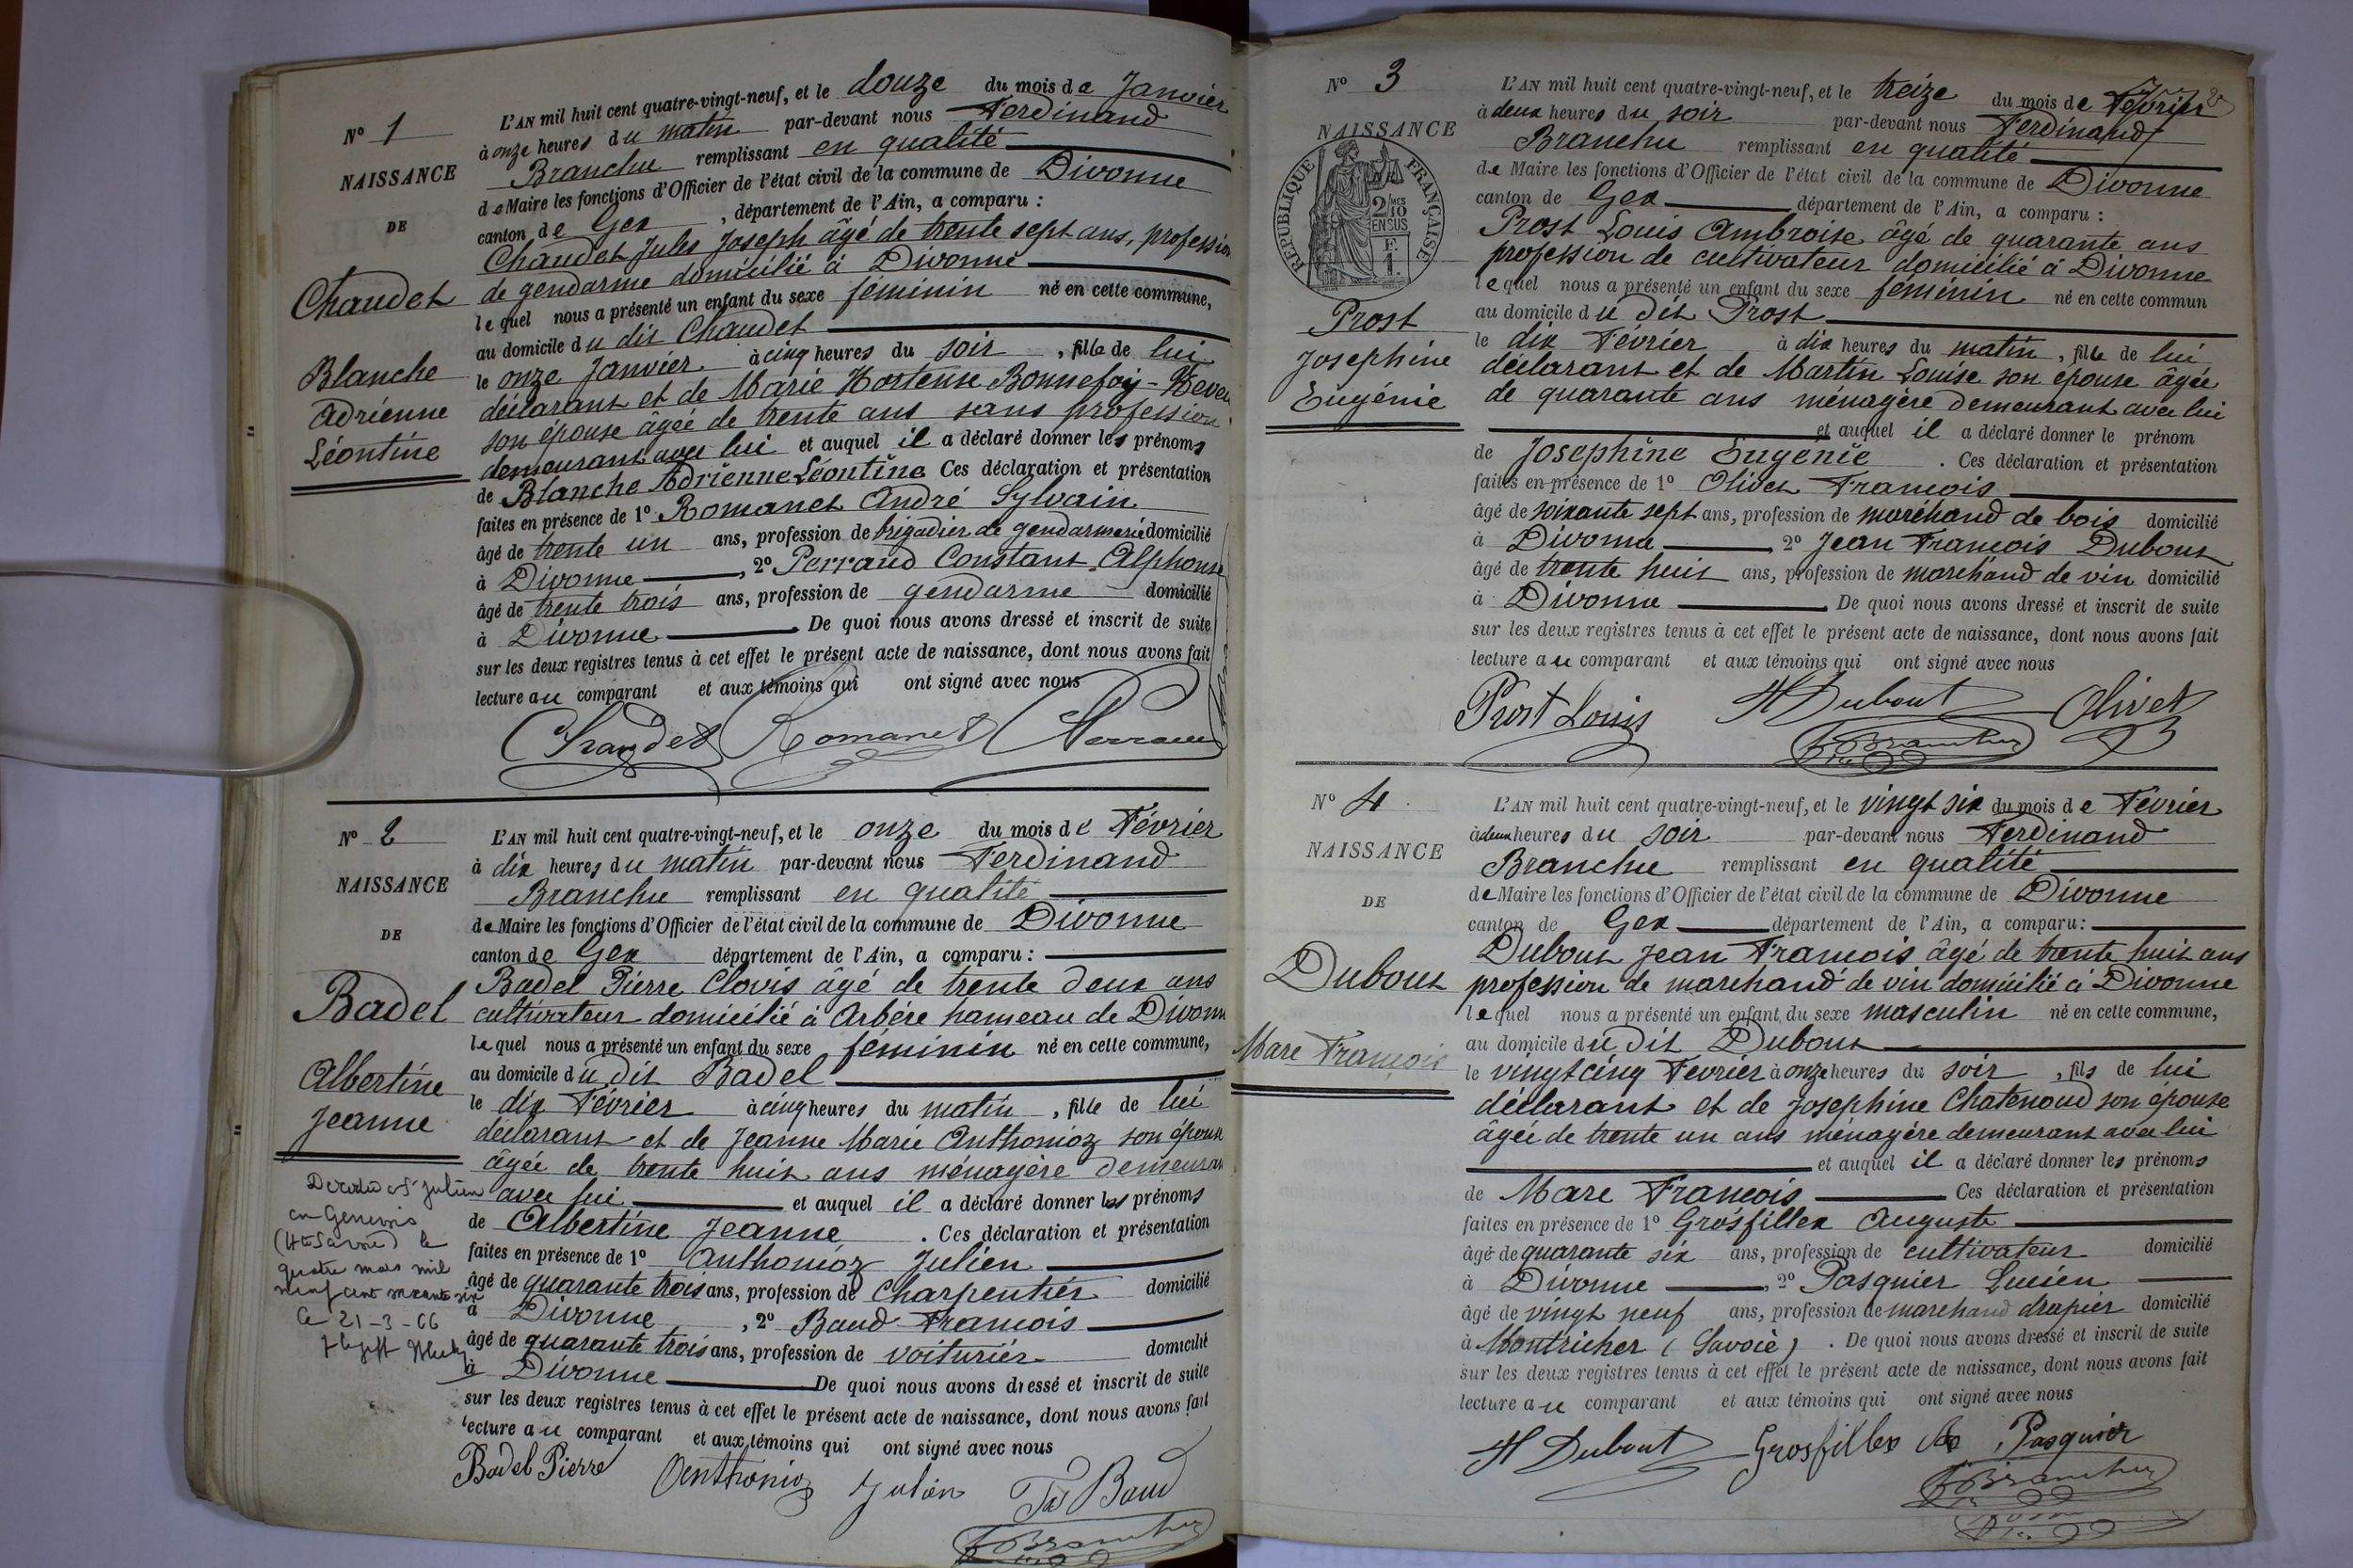 N° 1
NAISSANCE
DE
Chaudet
Blanche
Adrienne
Léontine
L'AN mil huit cent quatre-vingt-neuf, et le douze du mois de Janvier
à onze heures du matin par-devant nous Ferdinand
Branchu remplissant en qualité
de Maire les fonctions d'Officier de l'état civil de la commune de Divonne
canton de Gex, département de l'Ain, a comparu :
Chaudet Jules Joseph âgé de trente sept ans, profession
de gendarme domicilié à Divonne
lequel nous a présenté un enfant du sexe féminin né en cette commune,
au domicile du dit Chaudet
le onze Janvier à cinq heures du soir, fille de lui
déclarant et de Marie Hortense Bonnefoy-
son épouse âgée de trente ans sans profession
demeurant avec lui et auquel il a déclaré donner les prénoms
de Blanche Adrienne Léontine Ces déclaration et présentation
faites en présence de 1° Romanet André Sylvain
âgé de trente un ans, profession de brigadier de gendarmerie domicilié
à Divonne, 2° Perraud Constant Alphonse
âgé de trente trois ans, profession de gendarme domicilié
à Divonne De quoi nous avons dressé et inscrit de suite
sur les deux registres tenus à cet effet le présent acte de naissance, dont nous avons fait
lecture au comparant et aux témoins qui ont signé avec nous
Chaudet Romanet Perraud
N° 2
NAISSANCE
DE
Badel
Albertine
Jeanne
Décédée à St Julien
en Genevois
(Hte Savoie) le
quatre mars mil
neuf cent soixante six
le 21-3-66
L'AN mil huit cent quatre-vingt-neuf, et le onze du mois de Février
à dix heures du matin par-devant nous Ferdinand
Branchu remplissant en qualité
de Maire les fonctions d'Officier de l'état civil de la commune de Divonne
canton de Gex département de l'Ain, a comparu :
Badel Pierre Clovis âgé de trente deux ans
cultivateur domicilié à Arbère hameau de Divonne
lequel nous a présenté un enfant du sexe féminin né en cette commune,
au domicile du dit Badel
le dix Février à cinq heures du matin, fille de lui
déclarant et de Jeanne Marie Anthonioz son épouse
âgée de trente huit ans ménagère demeurant
avec lui et auquel il a déclaré donner les prénoms
de Albertine Jeanne. Ces déclaration et présentation
faites en présence de 1° Anthonioz Julien
âgé de quarante trois ans, profession de Charpentier domicilié
à Divonne, 2° Baud François
âgé de quarante trois ans, profession de voiturier domicilié
à Divonne De quoi nous avons dressé et inscrit de suite
sur les deux registres tenus à cet effet le présent acte de naissance, dont nous avons fait
lecture au comparant et aux témoins qui ont signé avec nous
Badel Pierre Anthonioz Julien Baud
F Branchu
N° 3
NAISSANCE
RÉPUBLIQUE FRANÇAISE
2/10 MES
EN SUS
F.
1.
Prost
Josephine
Eugénie
L'AN mil huit cent quatre-vingt-neuf, et le treize du mois de Février
à deux heures du soir par-devant nous Ferdinand
Branchu remplissant en qualité
de Maire les fonctions d'Officier de l'état civil de la commune de Divonne
canton de Gex département de l'Ain, a comparu :
Prost Louis Ambroise âgé de quarante ans
profession de cultivateur domicilié à Divonne
lequel nous a présenté un enfant du sexe féminin né en cette commun
au domicile du dit Prost
le dix Février à dix heures du matin, fille de lui
déclarant et de Martin Louise son épouse âgée
de quarante ans ménagère demeurant avec lui
et auquel il a déclaré donner le prénom
de Josephine Eugénie. Ces déclaration et présentation
faites en présence de 1° Olivet François
âgé de soixante sept ans, profession de marchand de bois domicilié
à Divonne, 2° Jean François Dubout
âgé de trente huit ans, profession de marchand de vin domicilié
à Divonne De quoi nous avons dressé et inscrit de suite
sur les deux registres tenus à cet effet le présent acte de naissance, dont nous avons fait
lecture au comparant et aux témoins qui ont signé avec nous
Prost Louis Dubout Olivet
F Branchu
N° 4
NAISSANCE
DE
Dubout
Marc François
L'AN mil huit cent quatre-vingt-neuf, et le vingt six du mois de Février
à deux heures du soir par-devant nous Ferdinand
Branchu remplissant en qualité
de Maire les fonctions d'Officier de l'état civil de la commune de Divonne
canton de Gex département de l'Ain, a comparu :
Dubout Jean François âgé de trente huit ans
profession de marchand de vin domicilié à Divonne
lequel nous a présenté un enfant du sexe masculin né en cette commune,
au domicile du dit Dubout
le vingt cinq Février à onze heures du soir, fils de lui
déclarant et de Josephine Chatenoud son épouse
âgée de trente un ans ménagère demeurant avec lui
et auquel il a déclaré donner les prénoms
de Marc François Ces déclaration et présentation
faites en présence de 1° Grosfillex Auguste
âgé de quarante six ans, profession de cultivateur domicilié
à Divonne, 2° Pasquier Lucien
âgé de vingt neuf ans, profession de marchand drapier domicilié
à Montricher (Savoie). De quoi nous avons dressé et inscrit de suite
sur les deux registres tenus à cet effet le présent acte de naissance, dont nous avons fait
lecture au comparant et aux témoins qui ont signé avec nous
Dubout Grosfillex Pasquier
F Branchu